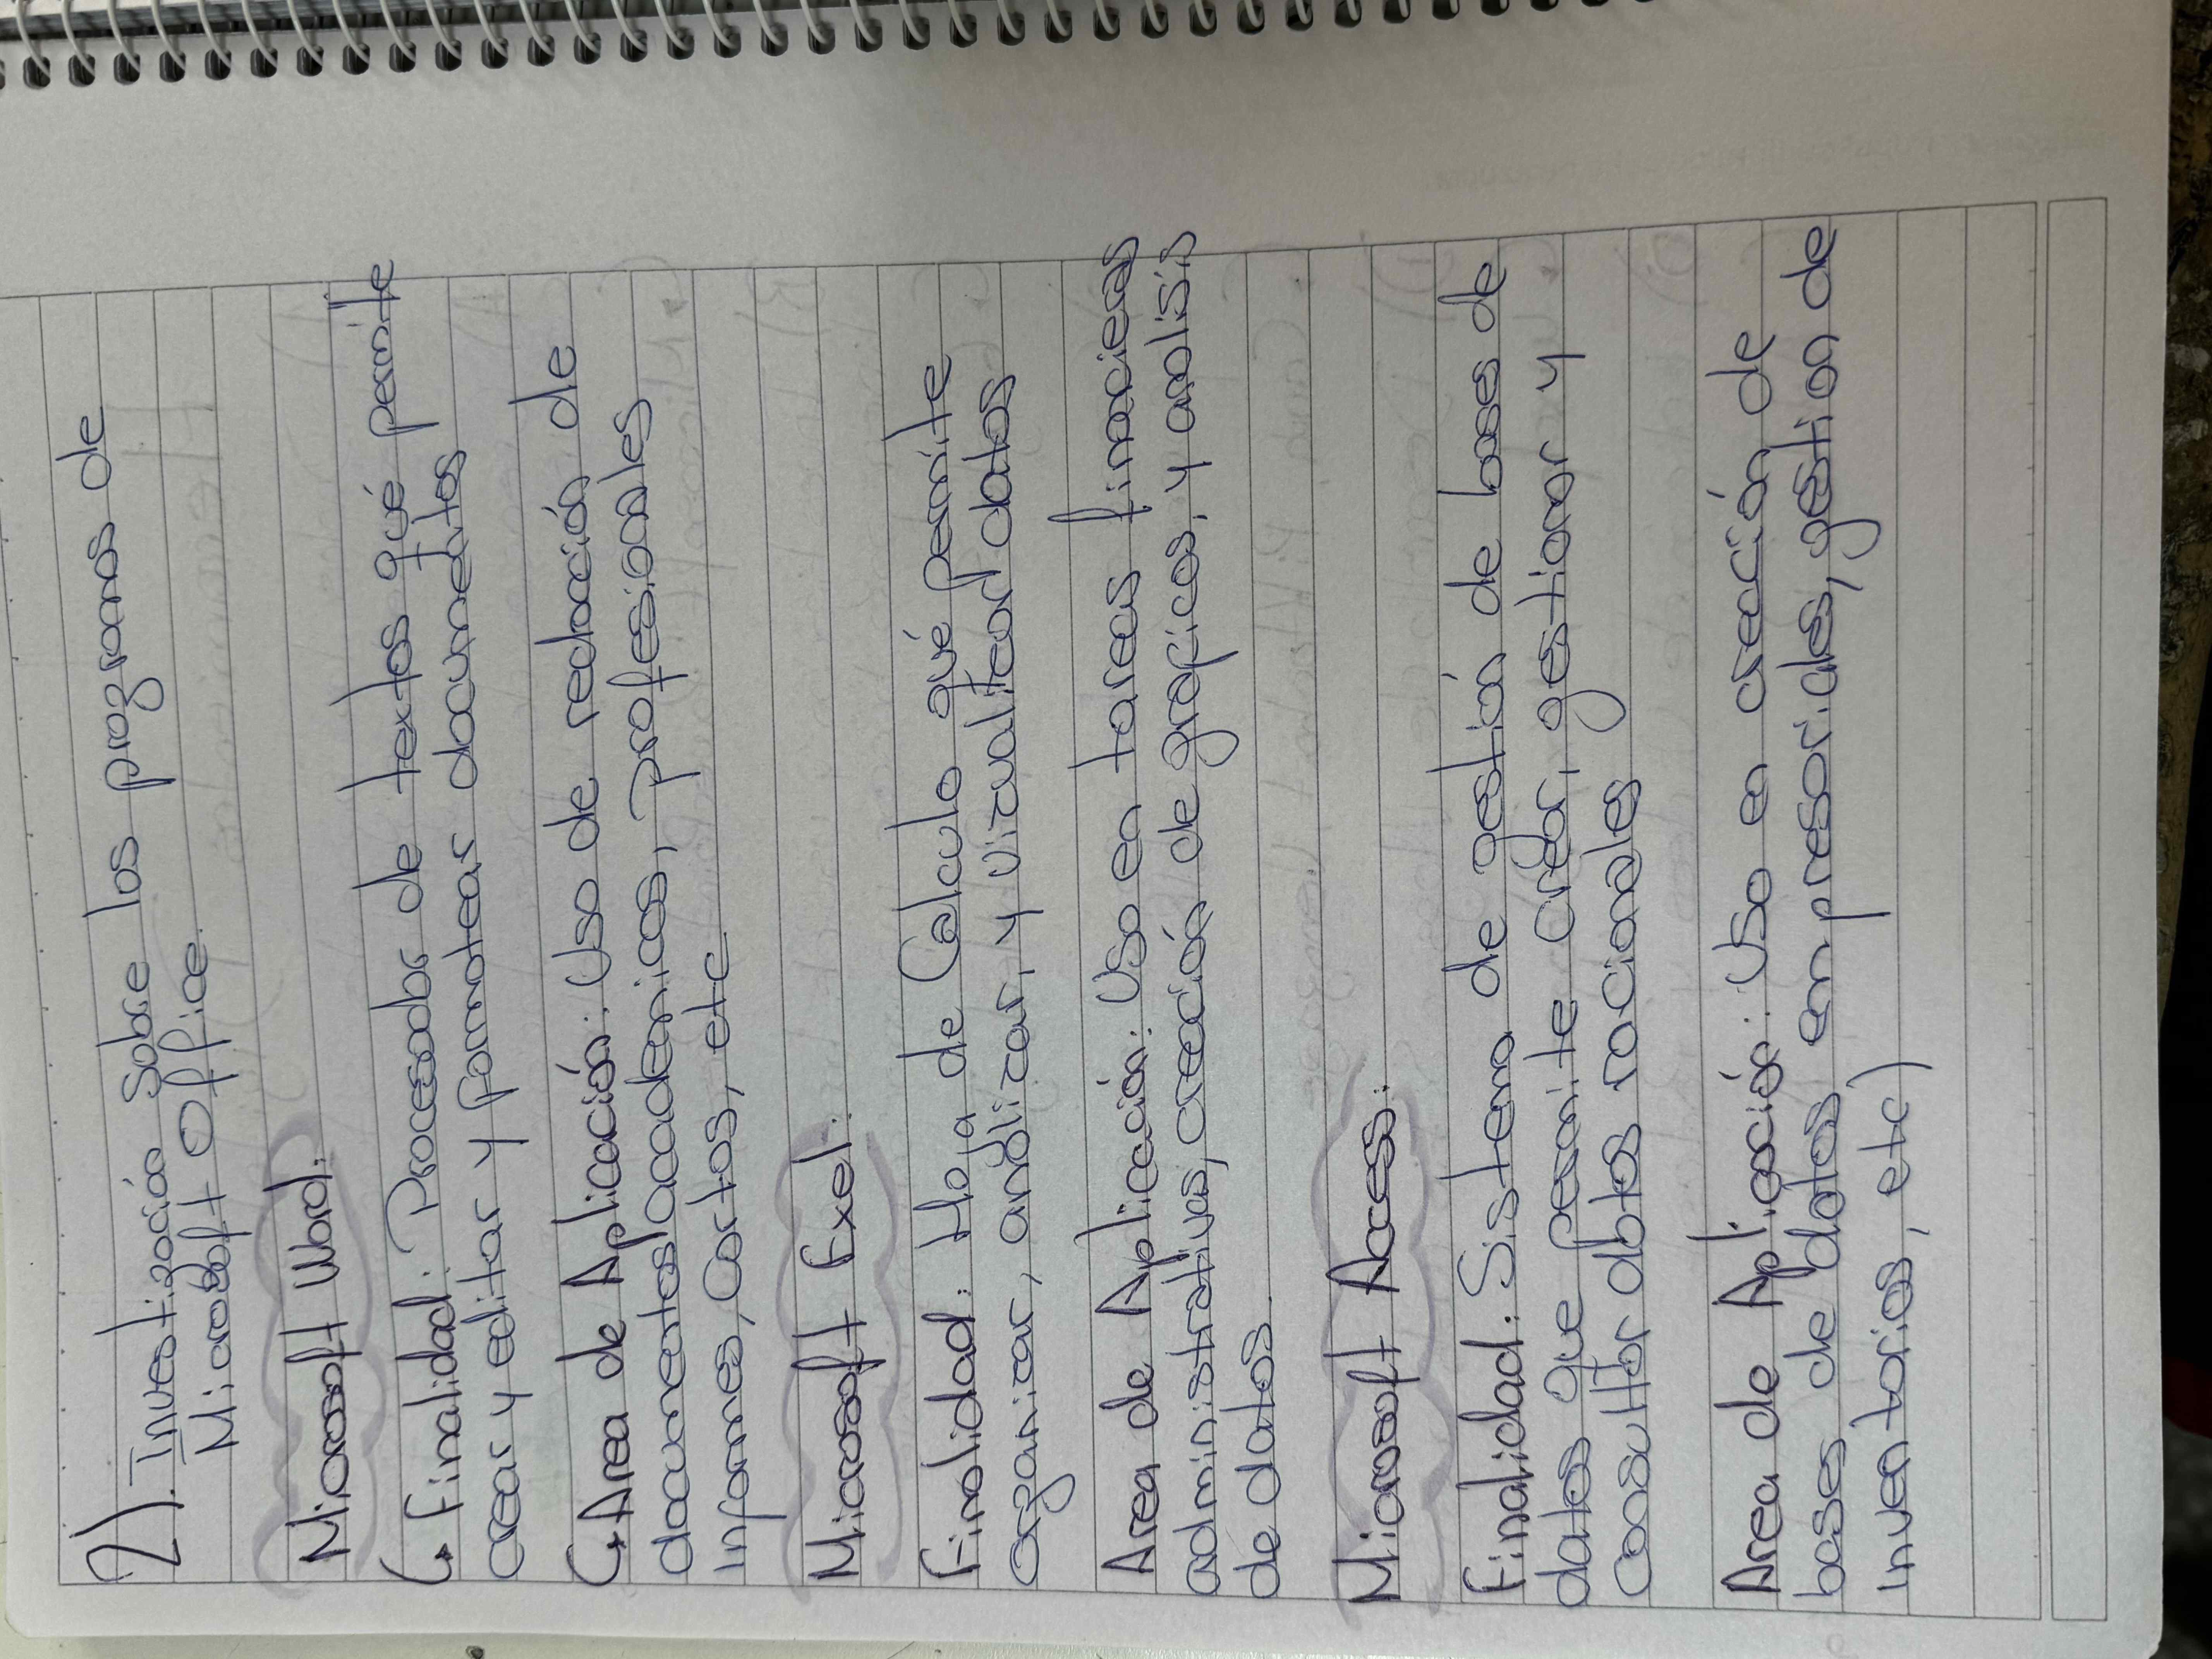 2). Investigación Sobre los programas de
Microsoft Office.
Microsoft Word:
↳ Finalidad: Procesador de textos qué permite
crear y editar y formatear documentos
↳ Area de Aplicación: Uso de redacción de
documentos academicos, profesionales
informes, Cartas, etc
Microsoft Exel:
Finalidad: Hoja de Calculo qué permite
organizar, analizar, y vizualitear datos
Area de Aplicación: Uso en tareas financieras
administrativas, creación de graficos, y analisis
de datos.
Microsoft Access:
Finalidad: Sistema de gestión de bases de
datos que permite crear, gestionar y
Consultar datos racionales
Area de Aplicación: Uso en creación de
bases de datos empresoriales, gestion de
inventorios, etc)